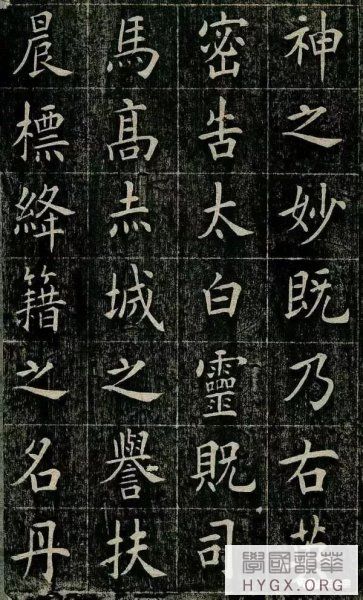 神之妙既乃右
密告太白靈貺司
馬髙赤城之譽扶
晨標絳籍之名丹
華韻國學
HYGX.ORG